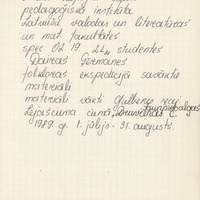 pedagoģiskā institūta
latviešu valodas un literatūras
un māt. fakultātes
spec 02.19 studentes
Dairas Germanes
folkloras ekspedīcijā savāktie
materiāli
materiāli vākti Gulbenes raj.
Lejasciema ciemā,
1989. g. 1. jūlijs - 31. augusts.